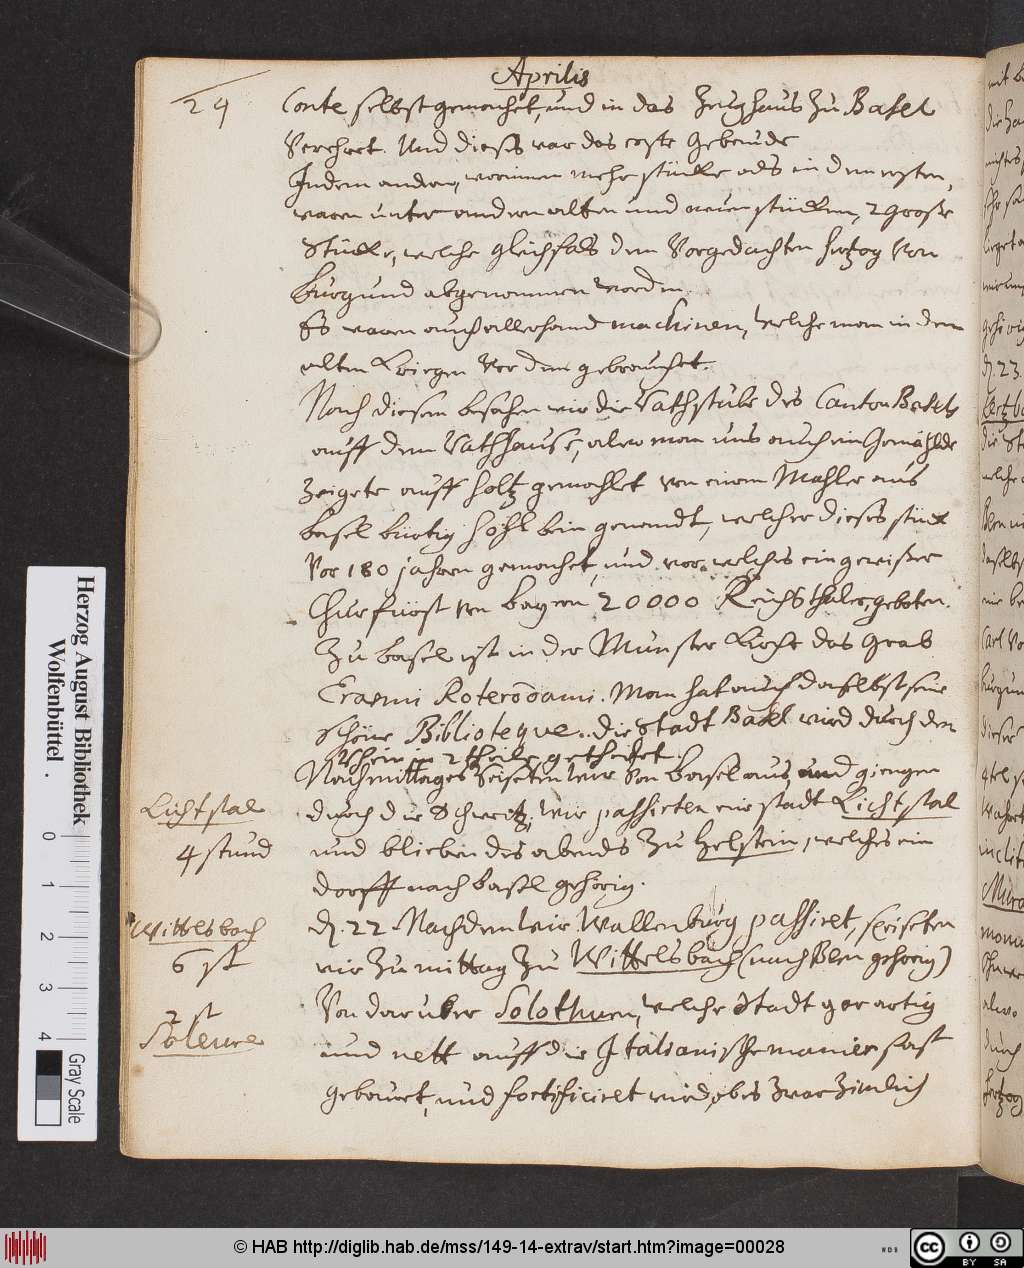 Aprilis
24
Conte selbst gemachet, und in das Zeughaus Zu Basel
Verehret. Und dieses war das erste Gebeude
Indem andern, worinnen mehr stücke als in dem ersten,
waren unter andern alten und neuen stücken, 2 große
Stücke, welche gleichfals dem Vorgedachten Hertzog Von
Burgund abgenommen worden.
Es waren auch allerhand machinen, welche man in den
alten Kriegen Vor dem gebrauchet.
Nach diesem besahen wir die Rathstube des Canton Basels
auff dem Rathhause, alwo man uns auch ein Gemählde
Zeigete auff Holtz gemahlet von einem Mahler aus
Basel bürtig Hohl bein genandt, welcher dieses stück
Vor 180 jahren gemachet, und vor welches ein gewißer
Churfürst von Bayern 20000 Reichsthaler geboten.
Zu Basel ist in der Münster Kirche das Grab
Erasmi Roterodami. Man hat auch daselbst eine
schöne Biblioteque. die Stadt Basel wird durch den
Rhein in 2 theile getheilet.
Nachmittages reiseten wir Von Basel aus, und giengen
durch die Schweitz, wir passirten eine stadt Lichtstal
und blieben des abends Zu Helstein, welches ein
dorff nach Basel gehörig.
d. 22 Nachdem wir Wallenburg passiret, speiseten
wir Zu mittag Zu Wittelsbach (nach Bern gehörig)
Von dar über Solothurn, welche Stadt gar artig
und nett auff die Italianische manier fast
gebauet, und fortificiret wird, ob es zwar zimlich
Lichtstal
4 stund
Wittelsbach
6 st
2 st
Soleure
d. 23.
Herzog August Bibliothek
Wolfenbüttel
0
1
2
3
4
Gray Scale
© HAB http://diglib.hab.de/mss/149-14-extrav/start.htm?image=00028
cc BY SA